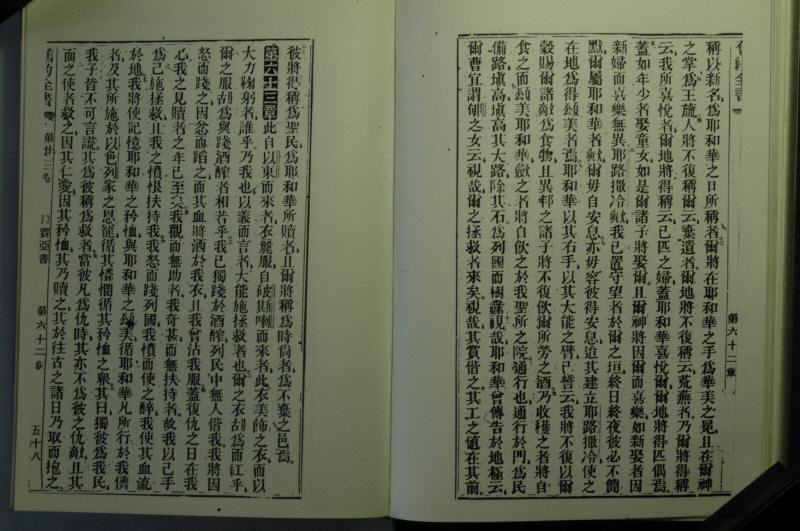 舊約全書
第六十二章
稱以新名爲耶和華之口所稱者爾將在耶和華之手爲華美之冕且在爾神
之掌爲王旒人將不復稱爾云棄遺者爾地將不復稱云荒蕪者乃爾將得稱
云我所喜悅者爾地將得稱云已匹之婦蓋耶和華喜悅爾爾地將得匹偶焉
蓋如年少者娶童女如是爾諸子將娶爾且爾神將因爾而喜樂如新娶者因
新婦而喜樂無異耶路撒冷歟我已置守望者於爾之垣終日終夜彼必不閒
默爾屬耶和華者歟爾毋自安息亦毋容彼得安息迨其建立耶路撒冷使之
在地爲得頌美者焉耶和華以其右手以其大能之臂已誓云我將不復以爾
穀賜爾諸敵爲食物且異邦之諸子將不復飲爾所勞之酒乃收穫之者將自
食之而頌美耶和華斂之者將自飲之於我聖所之院通行也通行於門爲民
備路填高填高其大路除其石爲列國而樹纛視哉耶和華曾傳告於地極云
爾曹宜謂郇之女云視哉爾之拯救者來矣視哉其賞偕之其工之値在其前
彼將得稱爲聖民爲耶和華所贖者且爾將稱爲時尚者爲不棄之邑焉
第六十三章此自以東而來者衣麗服自破斯喇而來者此衣美飾之衣而以
大力鞠躬者誰乎乃我也以義而言者大能施拯救者也爾之衣胡爲而紅乎
爾之服胡爲與踐酒醡者相若乎我已獨踐於酒醡列民中無人偕我我將因
怒而踐之因忿而蹈之而其血將洒於我衣且我曾沾我服蓋復仇之日在我
心我之見贖者之年已至矣我觀而無助者我奇甚而無扶持者故我以己手
爲己施拯救且我之憤恨扶持我我怒而踐列國我憤而使之醉我使其血流
於地我將使記憶耶和華之矜恤與耶和華之頌美循耶和華凡所行於我儕
者及其所施於以色列家之恩寵循其憐憫循其矜恤之衆其曰獨彼爲我民
我子皆不可言謊其爲彼稱爲救者當彼凡爲仇時其亦不爲彼之仇敵且其
面之使者救之因其仁愛因其矜恤其乃贖之其於往古之諸日乃取而抱之
舊約全書
第廿三卷
以賽亞書
第六十二章
五十八